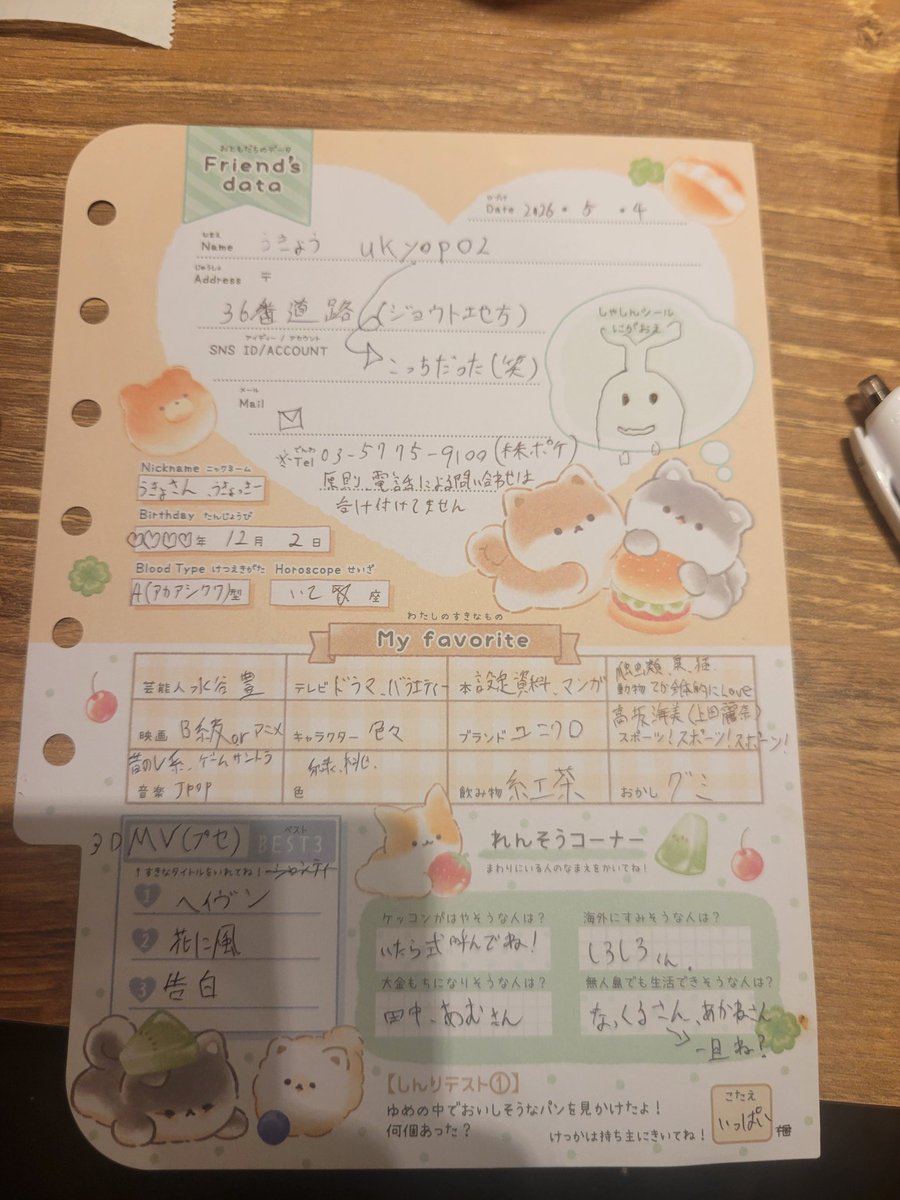 おともだちのデータ
Friend's data
ひづけ
Date 2026. 5. 4
なまえ
Name うきょう ukyop02
じゅうしょ
Address 〒
36番道路 (ジョウト地方)
アイディー / アカウント
SNS ID/ACCOUNT
こっちだった(笑)
しゃしんシール
にがおえ
メール
Mail
でんわ
Tel 03-5775-9100 (株.ポケ)
原則、電話による問い合わせは
受け付けてません
Nickname ニックネーム
うきょさん、うきょっきー
Birthday たんじょうび
♡♡♡♡年 12月 2日
Blood Type けつえきがた
A(アカアシクワ)型
Horoscope せいざ
いて座
わたしのすきなもの
My favorite
芸能人 水谷豊
テレビ ドラマ、バラエティー
本 設定資料、マンガ
爬虫類、
動物 てか全体的にLove
映画 B級 or アニメ
キャラクター 色々
ブランド ユニクロ
高坂海美(上田麗奈)
スポーツ!スポーツ!スポーツ!
昔のV系、ゲームサントラ
音楽 JPOP
緑、桃、
色
飲み物 紅茶
おかし グミ
3DMV(プセ)
ベスト
BEST3
↑すきなタイトルをいれてね!
シャンティ
1 ヘイヴン
2 花に風
3 告白
れんそうコーナー
まわりにいる人のなまえをかいてね!
ケッコンがはやそうな人は?
いたら式呼んでね!
海外にすみそうな人は?
しろしろくん
大金もちになりそうな人は?
田中、あむさん
無人島でも生活できそうな人は?
なっくるさん、あかねさん
→一旦ね?
【しんりテスト①】
ゆめの中でおいしそうなパンを見かけたよ!
何個あった?
けっかは持ち主にきいてね!
こたえ
いっぱい